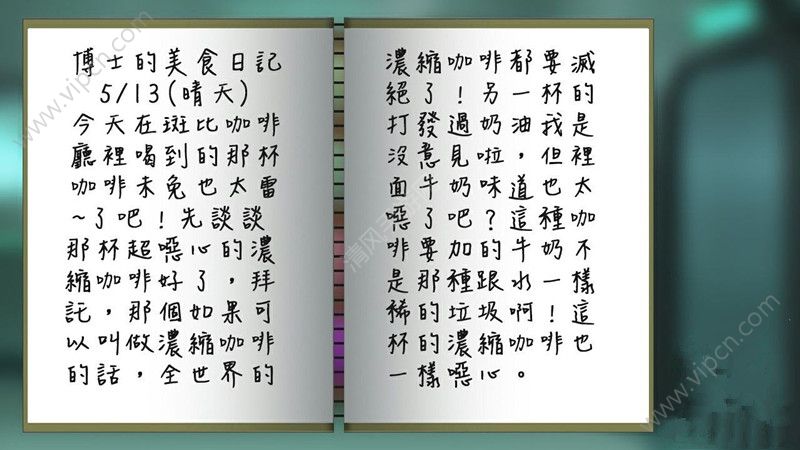 博士的美食日記
5/13(晴天)
今天在斑比咖啡
廳裡喝到的那杯
咖啡未免也太雷
~了吧！先談談
那杯超噁心的濃
縮咖啡好了，拜
託，那個如果可
以叫做濃縮咖啡
的話，全世界的
濃縮咖啡都要滅
絕了！另一杯的
打發過奶油我是
沒意見啦，但裡
面牛奶味道也太
噁了吧？這種咖
啡要加的牛奶不
是那種跟水一樣
稀的垃圾啊！這
杯的濃縮咖啡也
一樣噁心。
www.vipcn.com
www.vipcn.com